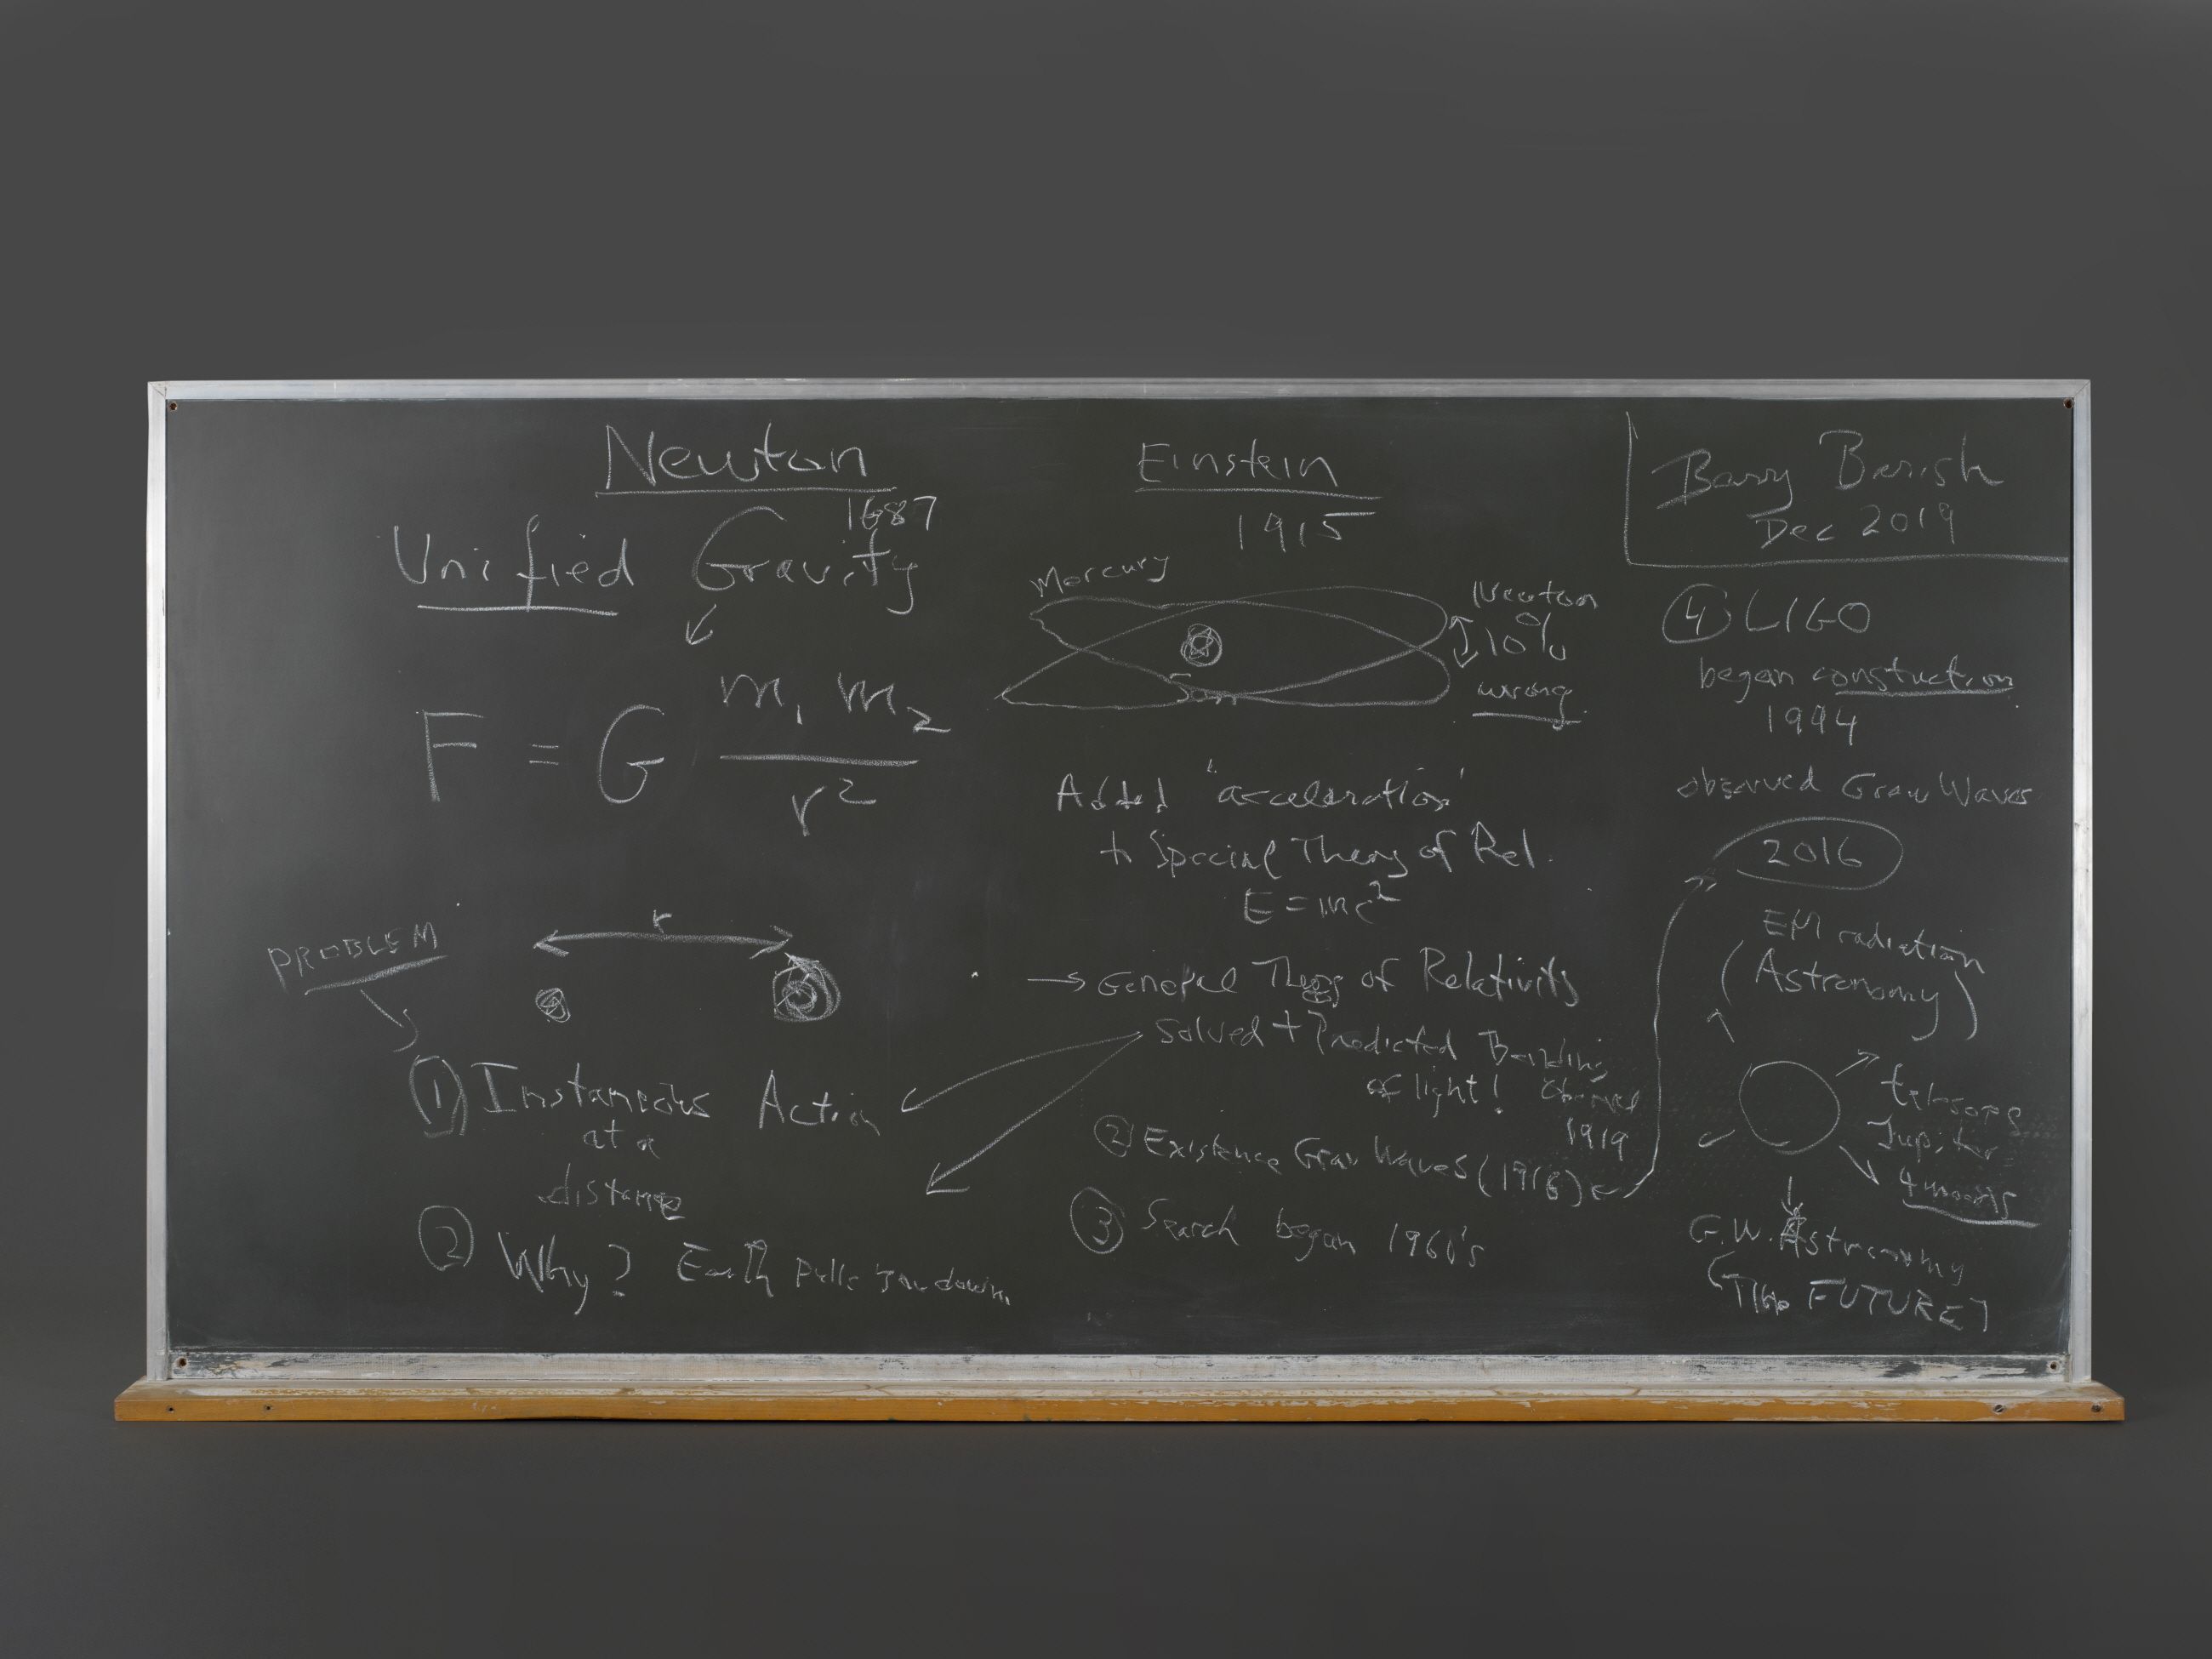 Newton
1687
Unified Gravity
F = G m₁ m₂ / r²
PROBLEM
r
① Instaneous Action
at a
distance
② Why? Earth pulls you down.
Einstein
1915
Mercury
Sun
Newton
10%
wrong
Added "acceleration"
to Special Theory of Rel.
E = mc²
→ General Theory of Relativity
Solved + Predicted Bending
of light! Observed
1919
② Existence Grav Waves (1916)
③ Search began 1960's
Barry Barish
Dec 2019
④ LIGO
began construction
1994
observed Grav Waves
2016
EM radiation
(Astronomy)
telescope
Jupiter
4 moons
G.W. Astronomy
(The FUTURE)